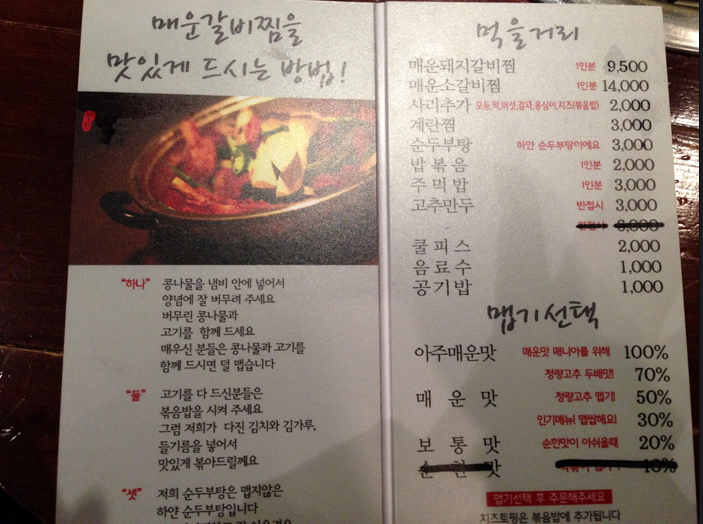 매운갈비찜을
맛있게 드시는 방법!
"하나" 콩나물을 냄비 안에 넣어서
양념에 잘 버무려 주세요
버무린 콩나물과
고기를 함께 드세요
매우신 분들은 콩나물과 고기를
함께 드시면 덜 맵습니다
"둘" 고기를 다 드신분들은
볶음밥을 시켜 주세요
그럼 저희가 다진 김치와 김가루,
들기름을 넣어서
맛있게 볶아드릴께요
"셋" 저희 순두부탕은 맵지않은
하얀 순두부탕입니다
먹을거리
매운돼지갈비찜 1인분 9,500
매운소갈비찜 1인분 14,000
사리추가 모듬,떡,버섯,감자,옹심이,치즈(볶음밥) 2,000
계란찜 3,000
순두부탕 하얀 순두부탕이에요 3,000
밥볶음 1인분 2,000
주먹밥 1인분 3,000
고추만두 반접시 3,000
6,000
쿨피스 2,000
음료수 1,000
공기밥 1,000
맵기선택
아주매운맛 매운맛 매니아를 위해 100%
청량고추 두배맛! 70%
매운맛 청량고추 맵기! 50%
인기메뉴! 맵쌉해요! 30%
보통맛 순한맛이 아쉬울때 20%
순한맛 10%
맵기선택 후 주문해주세요
치즈토핑은 볶음밥에 추가됩니다